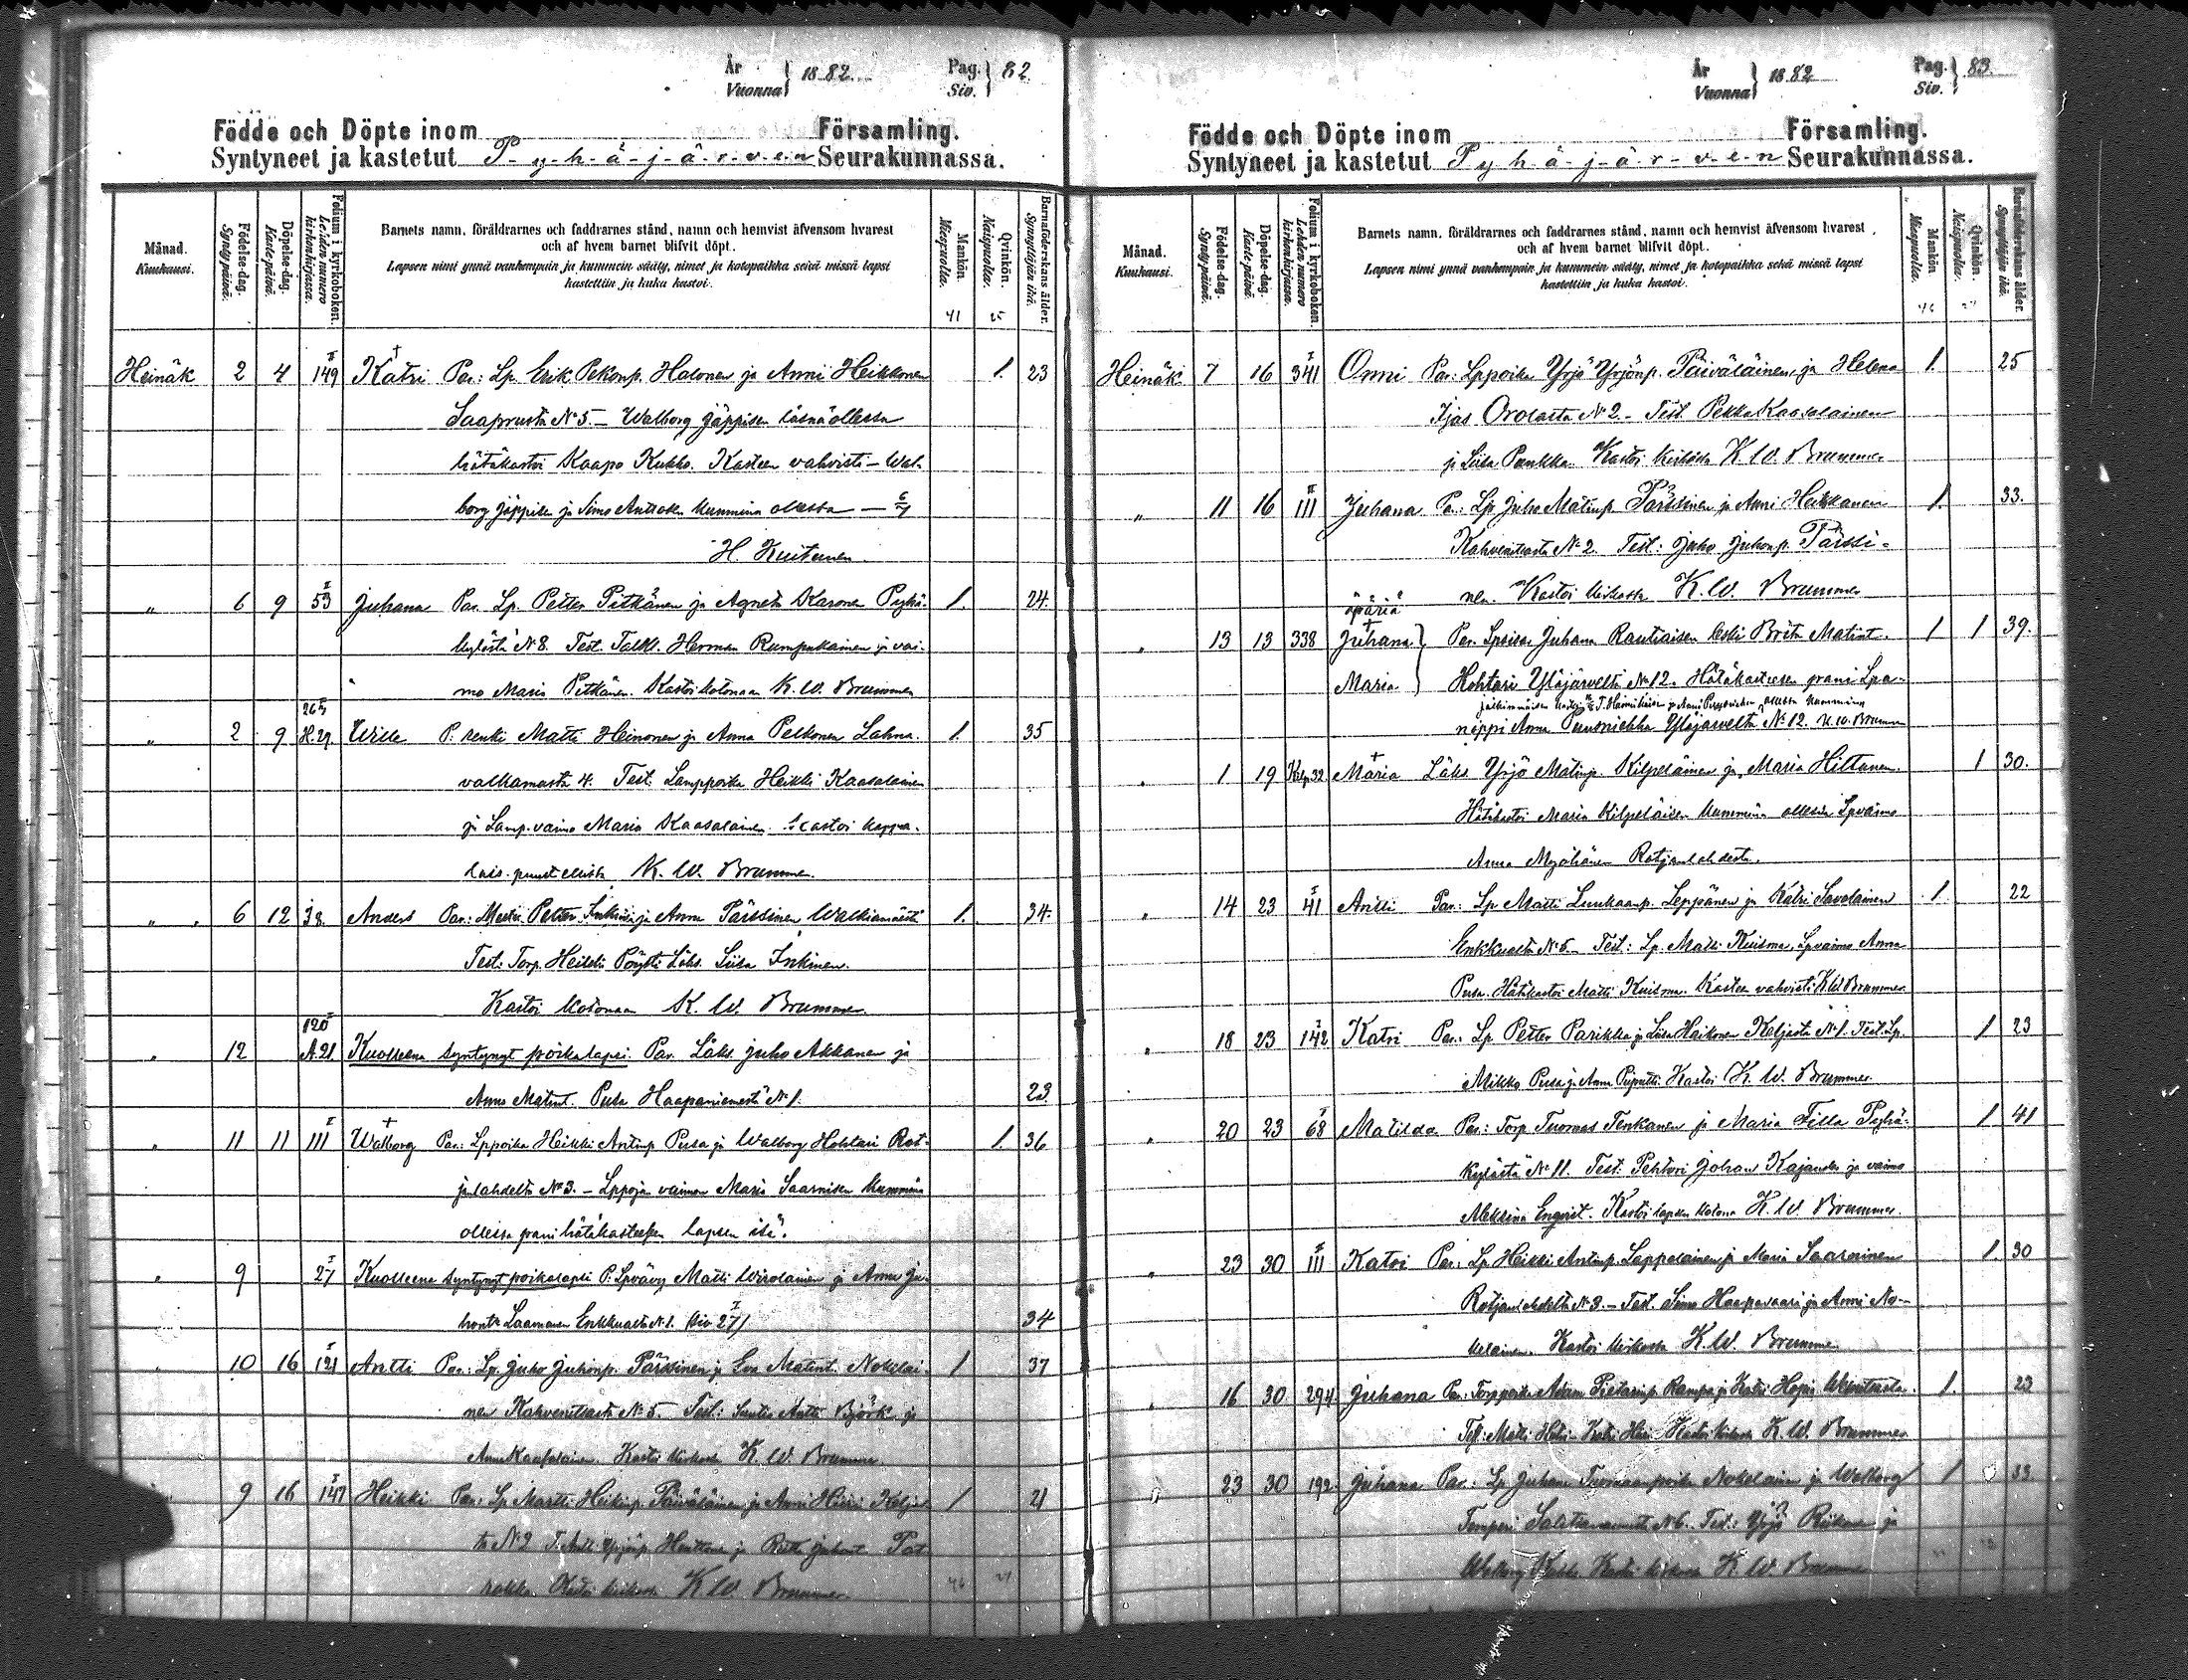 År Vuonna } 1882. Pag. Siv. } 82
Födde och Döpte inom Församling.
Syntyneet ja kastetut P-y-h-ä-j-ä-r-v-e-n Seurakunnassa.
Månad. Kuukausi.
Födelse-dag. Synty-päivä.
Döpelse-dag. Kaste-päivä.
Folium i kyrkoboken. Lehden numero kirkonkirjassa.
Barnets namn, föräldrarnes och faddrarnes stånd, namn och hemvist äfvensom hvarest
och af hvem barnet blifvit döpt.
Lapsen nimi ynnä vanhempain ja kummein sääty, nimet ja kotopaikka sekä missä lapsi
kastettiin ja kuka kastoi.
Mankön. Miespuolta.
Qvinkön. Naispuolta.
Barnaföderskans ålder. Synnyttäjän ikä.
41 25
Heinäk 2 4 II 149 Katri Par: Lp. Erik Pekonp. Halonen ja Anni Heikkonen 1. 23
Saaprusta No 5. – Walborg Jäppisen läsnäollessa
hätäkastoi Kaapo Kukko. Kasteen vahvisti – Wal-
borg Jäppisen ja Simo Anttosen kummina ollessa –
H. Kuitunen.
" 6 9 I 53 Juhana Par. Lp. Petter Pitkänen ja Agneta Karonen Pyhä- 1. 24.
kylästä No 8. Test. Talkl. Herman Rumpukainen ja vai-
mo Maria Pitkänen. Kastoi kotonaan K. W. Brummer
" 2 9 H.29. Wille P. renki Matti Heinonen ja Anna Pelkonen Lahna- 1. 35
valkamasta 4. Test. Lamppoika Heikki Kaasalainen
ja Lamp. vaimo Maria Kaasalainen. Kastoi kappa-
lais-puustellista K. W. Brummer.
" 6 12 I 38. Anders Par: Petter Inkinen ja Anna Pärssinen Walkiamäestä 1. 34.
Test: Torp. Heikki Pöysti Läks. Liisa Inkinen.
Kastoi kotonaan K. W. Brummer.
" 12 120 A.21 Kuolleena syntynyt poikalapsi Par. Läks. Juho Akkanen ja
Anna Matint. Pusa Haapaniemestä No 1. 23.
" 11 11 II 111 Walborg Par: Lppoika Heikki Antinp Pusa ja Walborg Hohtari Rat- 1. 36
janlahdelta No 3. – Lppoja vaimon Maria Saarnisen kummina
ollessa pani hätäkasteesen lapsen isä.
" 9 I 27 Kuolleena syntynyt poikalapsi P. Lpvävy Matti Wirolainen ja Anna Ju-
hont. Laamanen Enkkualta No 1. (siv. 27) 34
" 10 16 I 121 Antti Par: Lp. Juho Juhonp. Pärssinen ja Eva Matint. Nokelai- 1 37
nen Kahvenitsasta No 5. Test: Antti Björk ja
Anna Kaasalainen. Kastoi kirkossa K. W. Brummer.
9 16 I 147 Heikki Par: Lp Martti Heikinp. Päiväläinen ja Anni Hiiri Keljas- 1 21
ta No 2 T. Antti Yrjönp. Huuttonen ja Riitta Juhont Pat-
rakka. Kastoi kirkossa K W. Brummer.
År Vuonna } 1882 Pag. Siv. } 83.
Födde och Döpte inom Församling.
Syntyneet ja kastetut P-y-h-ä-j-ä-r-v-e-n Seurakunnassa.
Månad. Kuukausi.
Födelse-dag. Synty-päivä.
Döpelse-dag. Kaste-päivä.
Folium i kyrkoboken. Lehden numero kirkonkirjassa.
Barnets namn, föräldrarnes och faddrarnes stånd, namn och hemvist äfvensom hvarest
och af hvem barnet blifvit döpt.
Lapsen nimi ynnä vanhempain ja kummein sääty, nimet ja kotopaikka sekä missä lapsi
kastettiin ja kuka kastoi.
Mankön. Miespuolta.
Qvinkön. Naispuolta.
Barnaföderskans ålder. Synnyttäjän ikä.
Heinäk 7 16 I 341 Onni Par: Lppoika Yrjö Yrjönp. Päiväläinen, ja Helena 1. 25
Ijas Orolasta No 2. – Test. Pekka Kaasalainen
ja Liisa Punkka. Kastoi kirkossa K. W. Brummer
" 11 16 II 111 Juhana Par: Lp. Juho Matinp. Pärssinen ja Anni Heikkanen 1. 33.
Kahvenitsasta No 2. Test: Juho Juhonp. Pärssi-
nen. Kastoi kirkossa K. W. Brummer
äpäriä
" 13 13 338 Juhana } Par. Lpsisar Juhana Rautiaisen leski Brita Matint. 1 1 39.
Maria } Hohtari Yläjärveltä No 12. Hätäkasteesen pani Lpa-
näppi Anna Puusniekka Yläjärveltä No 12. K. W. Brummer
" 1 19 Maria Läks. Yrjö Matinp. Kilpeläinen ja Maria Hiltunen. 1 30.
Hätäkastoi Maria Kilpeläinen kummina ollessa Lpvaimo
Anna Myöhänen Ratjanlahdesta.
" 14 23 I 41 Antti Par: Lp. Matti Luukaanp. Leppänen ja Katri Savolainen 1. 22
Enkkualta No 5. – Test: Lp. Matti Kuisma, Lpvaimo Anna
Pusa. Hätäkastoi Matti Kuisma. Kasteen vahvisti K.W. Brummer.
" 18 23 I 142 Katri Par: Lp Petter Parikka ja Liisa Haikonen Keljasta No 1. Test. Lp. 1 23
Mikko Pusa ja Anna Kastoi K. W. Brummer.
" 20 23 I 68 Matilda Par: Torp. Tuomas Tenkanen ja Maria Filla Pyhä- 1 41
kylästä No 11. Test. Pehtori Johan Kajander ja vaimo
Aleksina Engqvist. Kastoi lapsen kotona K. W. Brummer.
" 23 30 II 111 Katri Par: Lp Heikki Antinp. Lappalainen ja Maria Saarninen 1. 30
Ratjanlahdelta No 3. – Test. Simo Haapavaari ja Anni No-
kelainen. Kastoi kirkossa K. W. Brummer.
" 16 30 294 Juhana Par: Torppoika Adam Pietarinp. Rampa ja Katri 1. 23
Test: Matti Kastoi kirkossa K. W. Brummer
" 23 30 192. Juhana Par: Lp Juhana Tuomaanpoika Nokelainen ja Walborg 1 33.
Tomperi Salitsanrannasta No 6. Test: Yrjö Riikonen ja
Walborg Kastoi kirkossa K. W. Brummer